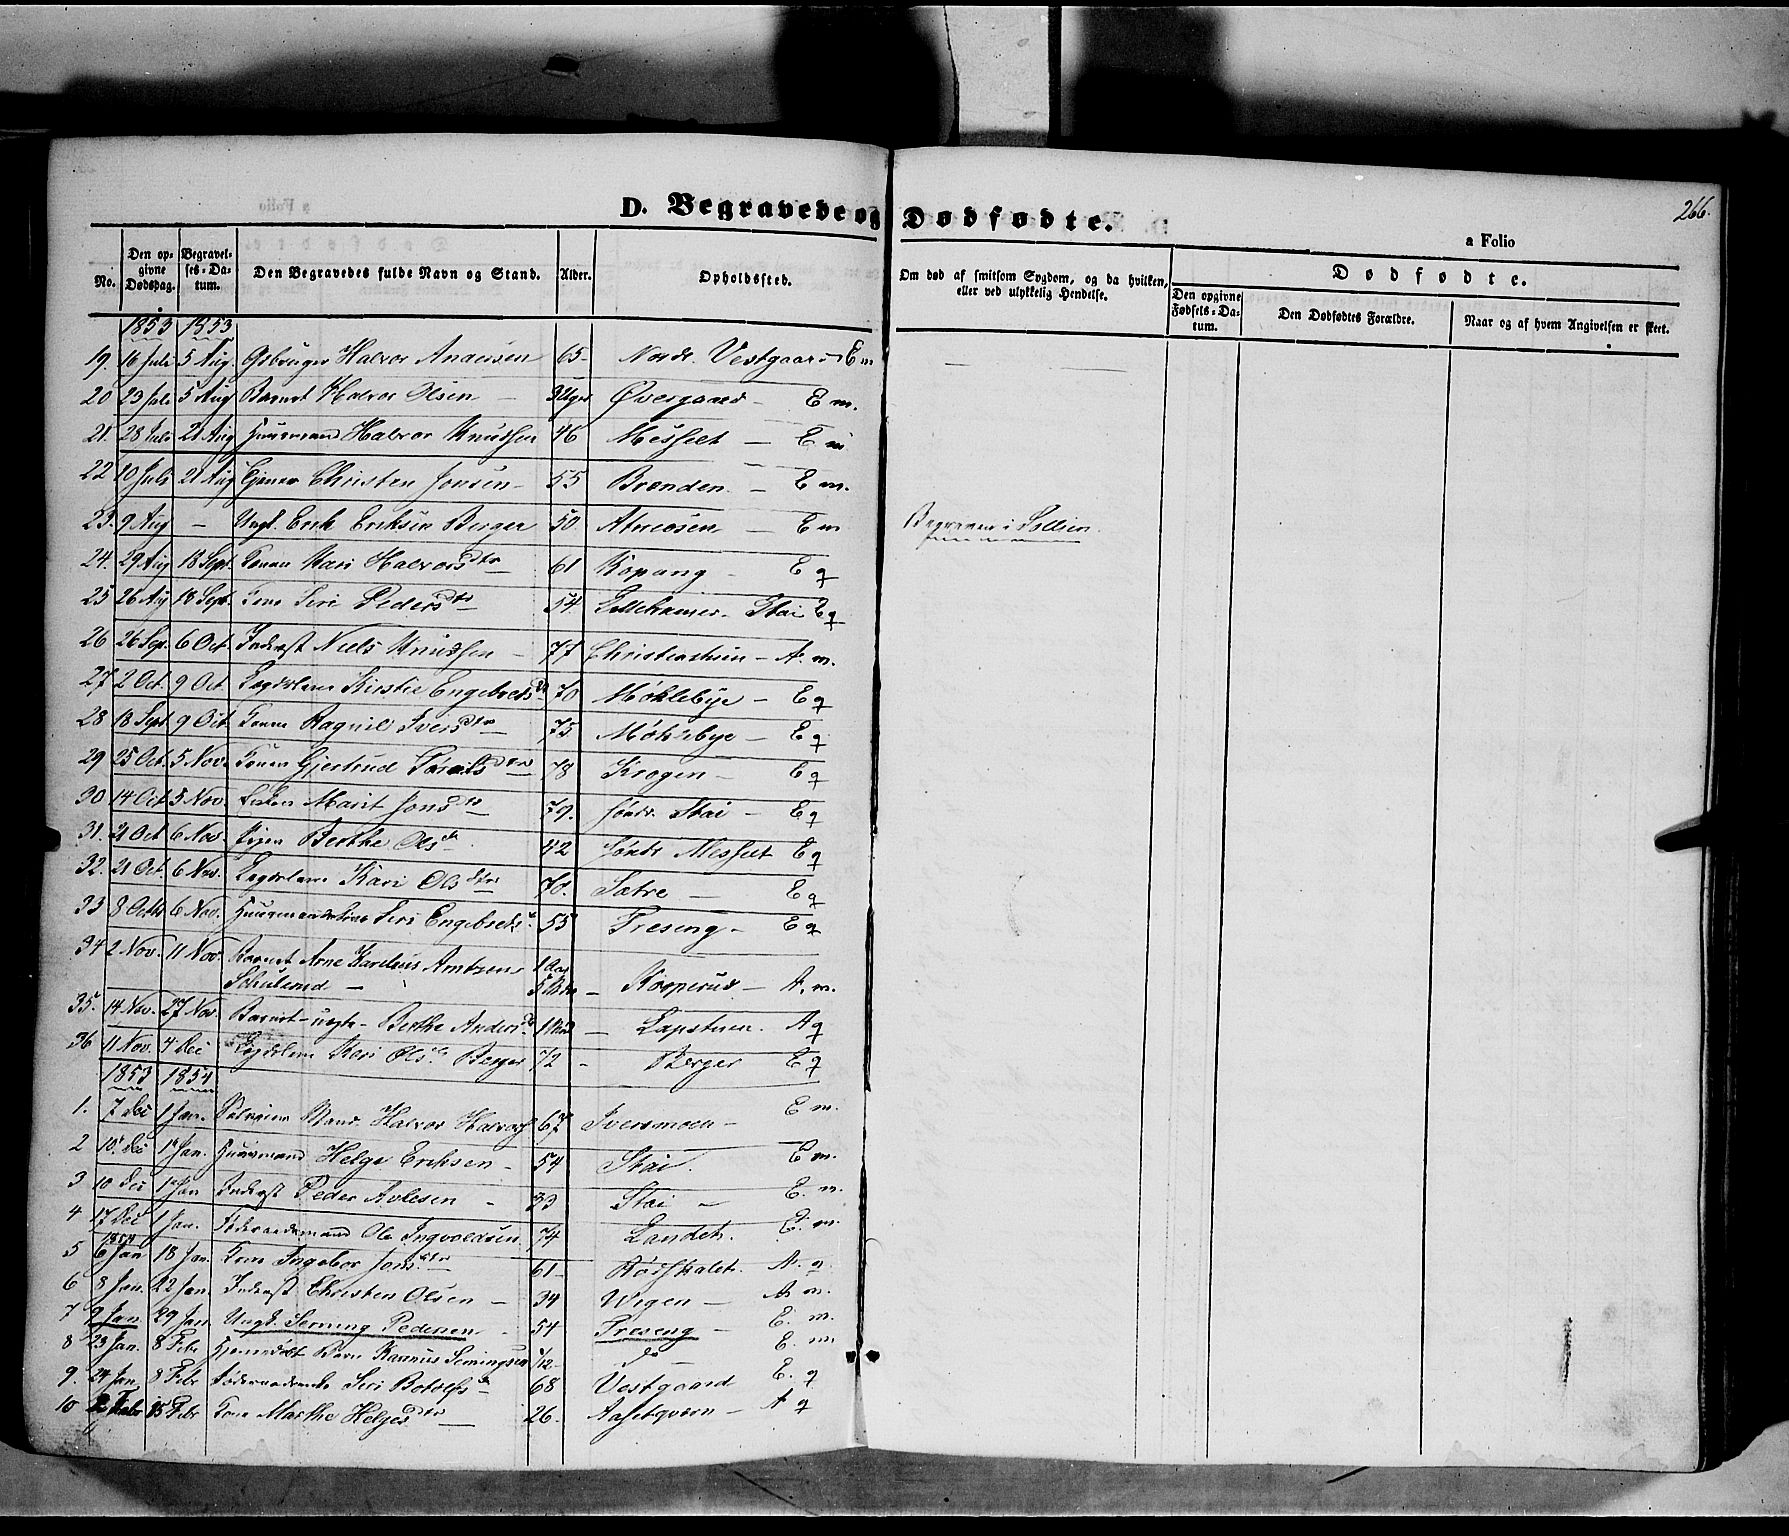 266.
D. Begravede og Dødfødte.
a Folio
No.
Den opgivne Dødsdag.
Begravelses-Datum.
Den Begravedes fulde Navn og Stand.
Alder.
Opholdssted.
Om død af smitsom Sygdom, og da hvilken, eller ved ulykkelig Hendelse.
Dødfødte.
Den opgivne Fødsels-Datum.
Den Dødfødtes Forældre.
Naar og af hvem Angivelsen er skeet.
1853 1853
19. 16 Juli 5 Aug. Halvor 65 Nordr. Vestgaard E m
20 23 Juli 5 Aug Barnet Halvor Olsen 3 Uger Øvergaard E m.
21. 28 Juli 21 Aug Huusmand Halvor Knudsen 46 Messelt E m
22 10 Juli 21 Aug Christen Jonsen 55 Brænden E m.
23. 9 Aug Ungk. Erik Eriksen Berger 50 Atneosen E m Begraven i Sollien
24. 29 Aug 18 Sept. Konen Mari Halvorsdtr 61 Kopang E q
25 26 Aug 18 Sept. Kone Siri Pedersdtr 54 Stai E q
26 26 Sep. 6 Oct. Inderst Niels Knudsen 77 A. m.
27 2 Oct. 9 Oct. Lægdslem Kirstie Engebretsdtr 70 Møklebye E q
28 18 Sept 9 Oct. Konen Ragnil Iversdtr 75 Møklebye E q
29 25 Oct. 5 Nov. Konen Gjertrud 78 Krogen E q
30 14 Oct. 5 Nov. Marit Jonsdtr 79. Søndr Stai E q
31. 21 Oct 6 Nov. Pigen Berthe Olsdtr 42 Søndr Messelt E q
32. 21 Oct. 6 Nov. Lægdslem Kari Olsdtr 70. Sætre E q
33 8 Octb 6 Nov. Siri Engebretsdtr 55 Træseng E q
34 2 Nov. 11 Nov. Barnet Arne Karelius Amtzens
1 Aar Kopperud A. m.
35. 14 Nov. 27 Nov. Barnet uægte Berthe Andersdtr 1 Lapstuen. A q
36 11 Nov. 4 Dec Lægdslem Kari Olsdtr Berger 72 Berger E q
1853 1854
1. 7 Dec 1 Jan. Halvor Halvors. 67 Iversmoen E m.
2 10 Dec 1 Jan. Huusmand Helge Eriksen 54 Stai. E m.
3 10 Dec 1 Jan Inderst Peder Avlesen 33 Stai E. m.
4 17 Dec 1 Jan. Føderaadsmand Ole Ingvoldsen 74 Landet. E. m.
1854
5 6 Jan 18 Jan. Kone Ingebor Jonsdtr 61 A. q.
6 8 Jan. 22 Jan. Inderst Christen Olsen 34 Wigen A m.
7 9 Jan 29 Jan Ungk. Seming Pedersen 54 Træseng E. m.
8 23 Jan. 8 Febr Hjemmedøbt Barn Rasmus Semingsen 1/12 do E. m.
9. 24 Jan. 8 Febr Føderaadsenke Siri Botolfsdtr 68 Vestgaard E. q
10 Febr 15 Febr Kone Marthe Helgesdtr 26. Aasetqværn A q